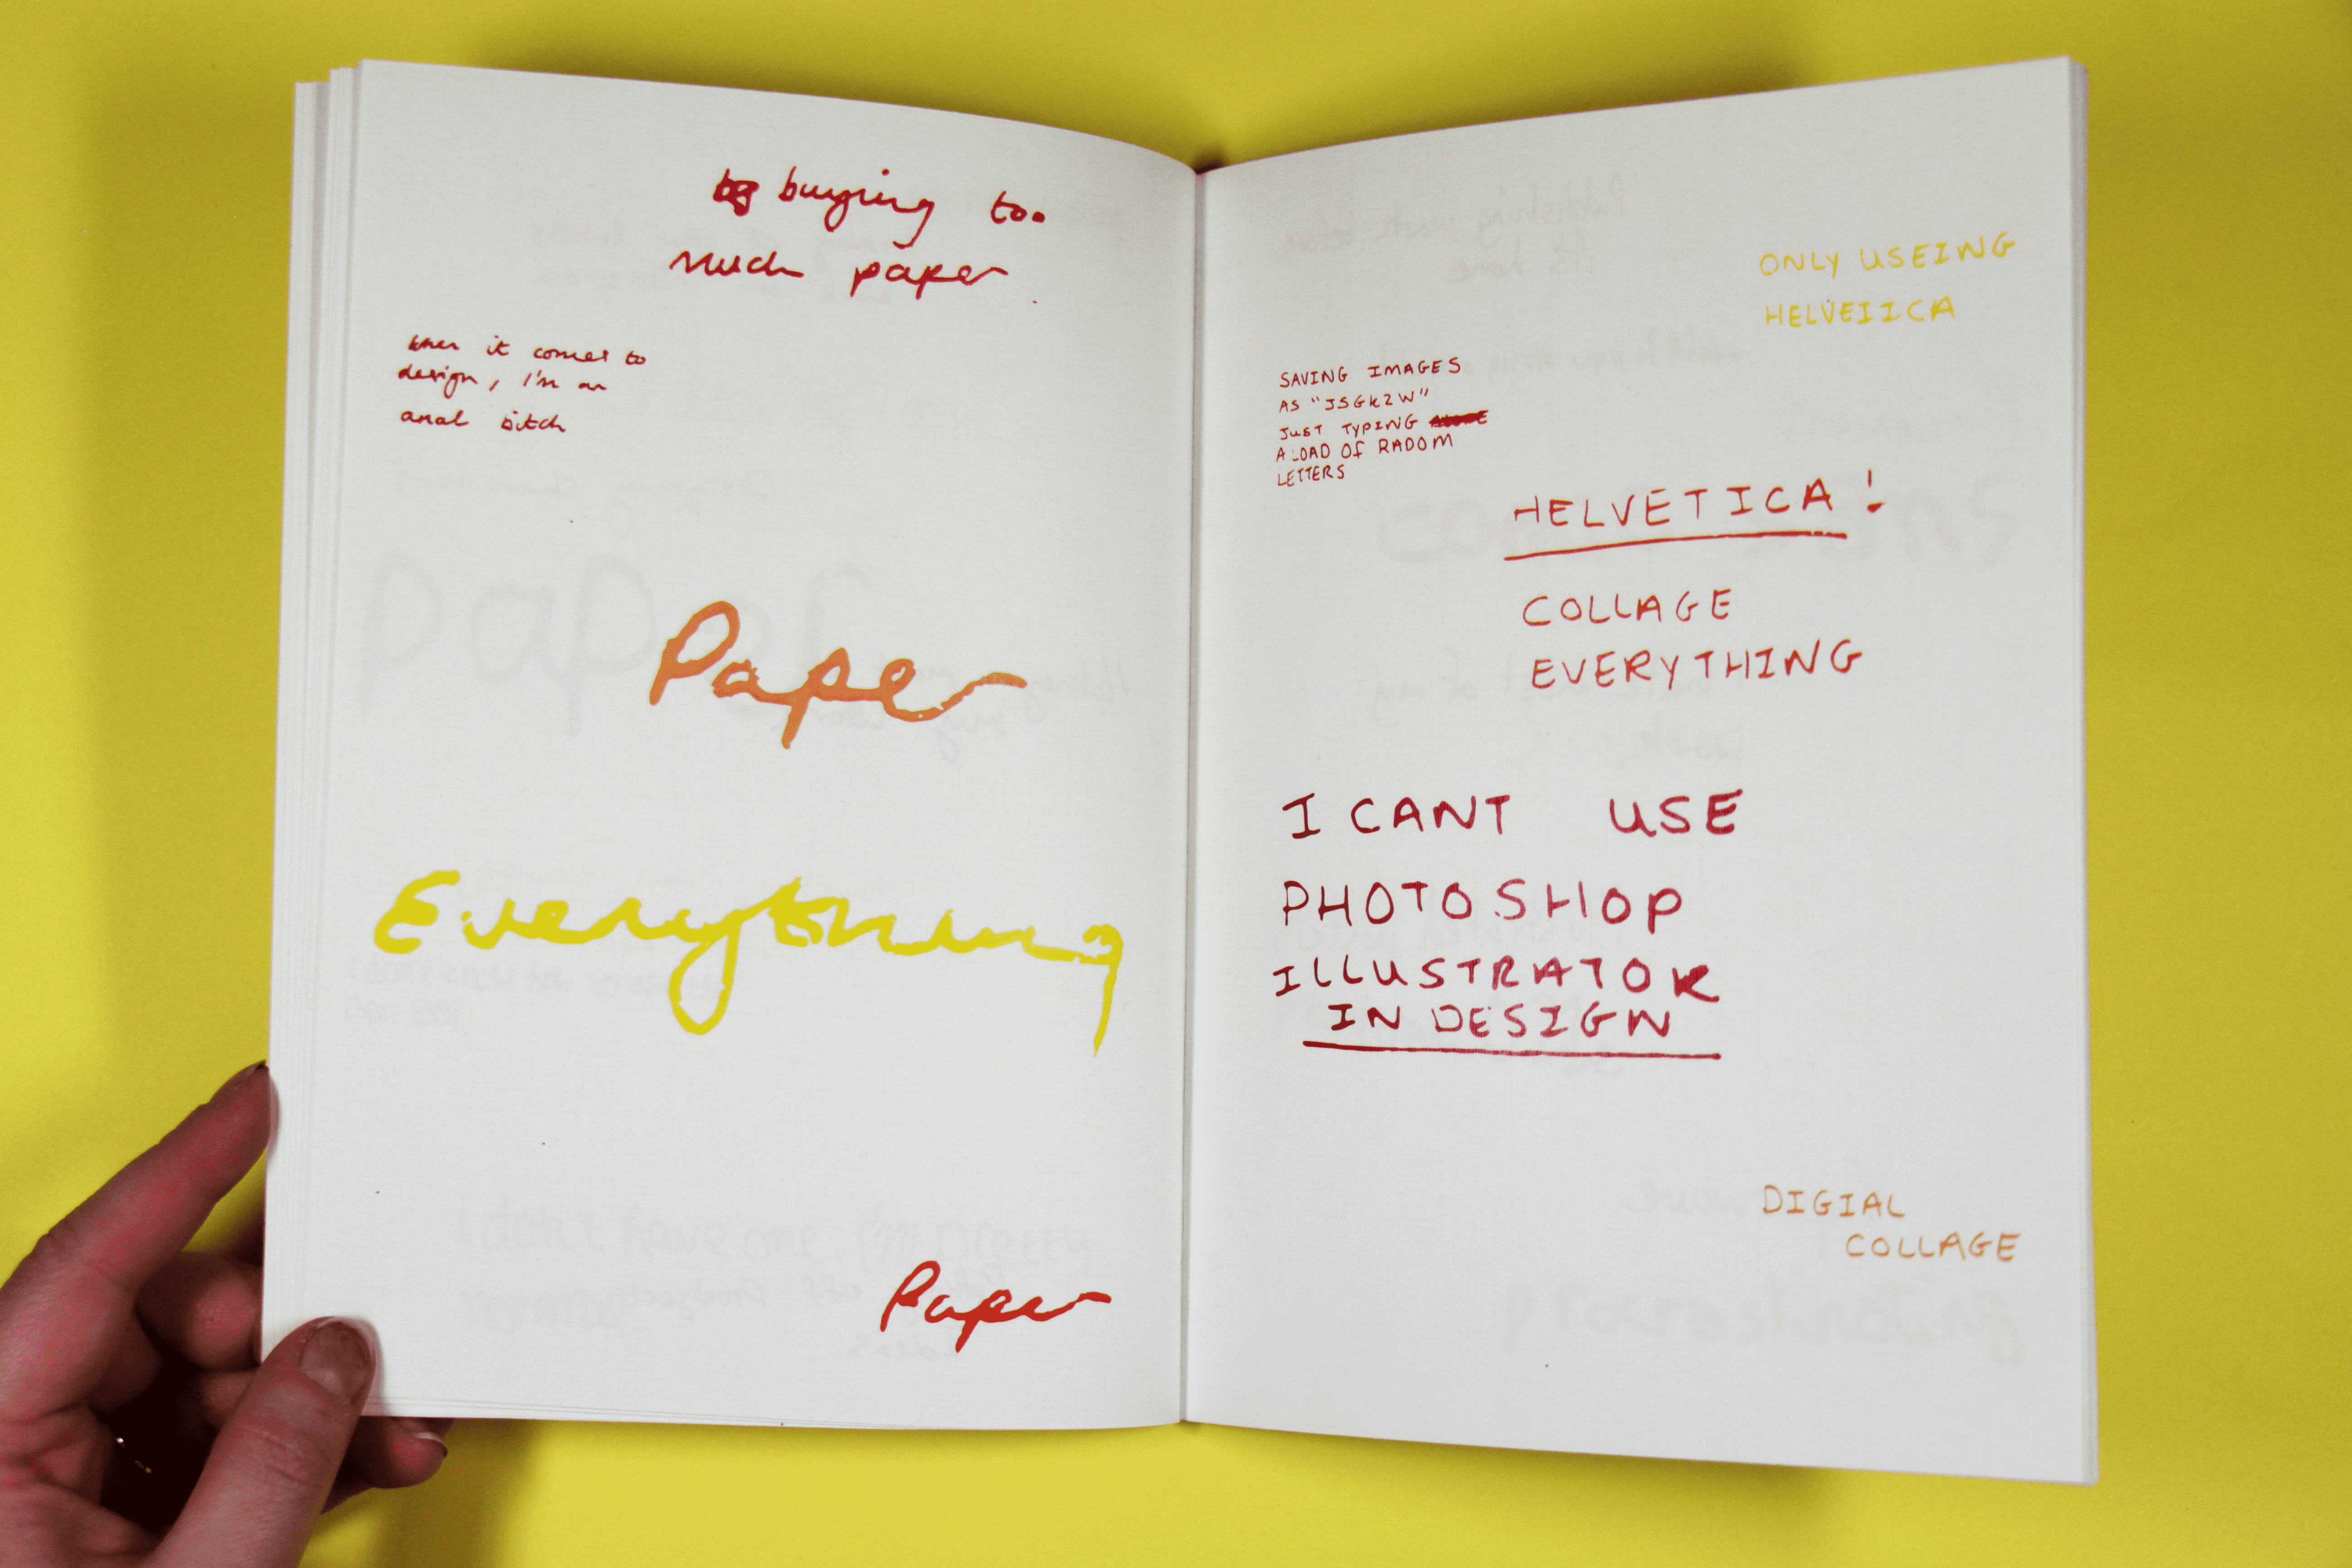 buying too
much paper
when it comes to
design, I'm an
anal bitch
Paper
Everything
Paper
ONLY USEING
HELVEIICA
SAVING IMAGES
AS "JSGKZW"
JUST TYPING
A LOAD OF RADOM
LETTERS
HELVETICA!
COLLAGE
EVERYTHING
I CANT USE
PHOTOSHOP
ILLUSTRATOR
IN DESIGN
DIGIAL
COLLAGE